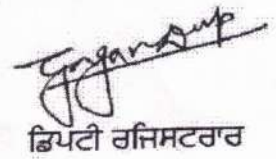 Gagandeep
ਡਿਪਟੀ ਰਜਿਸਟਰਾਰ